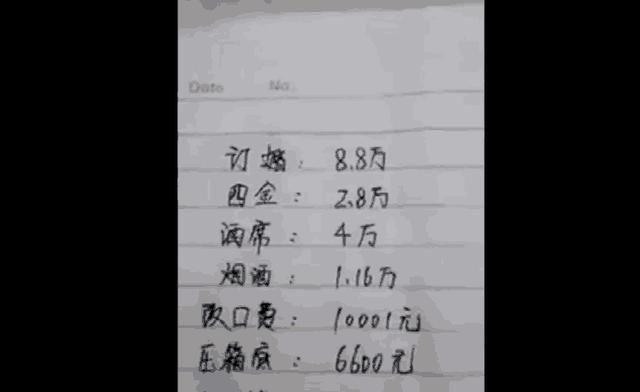 Date No.
订婚：8.8万
四金：2.8万
酒席：4万
烟酒：1.16万
改口费：10001元
压箱底：6600元